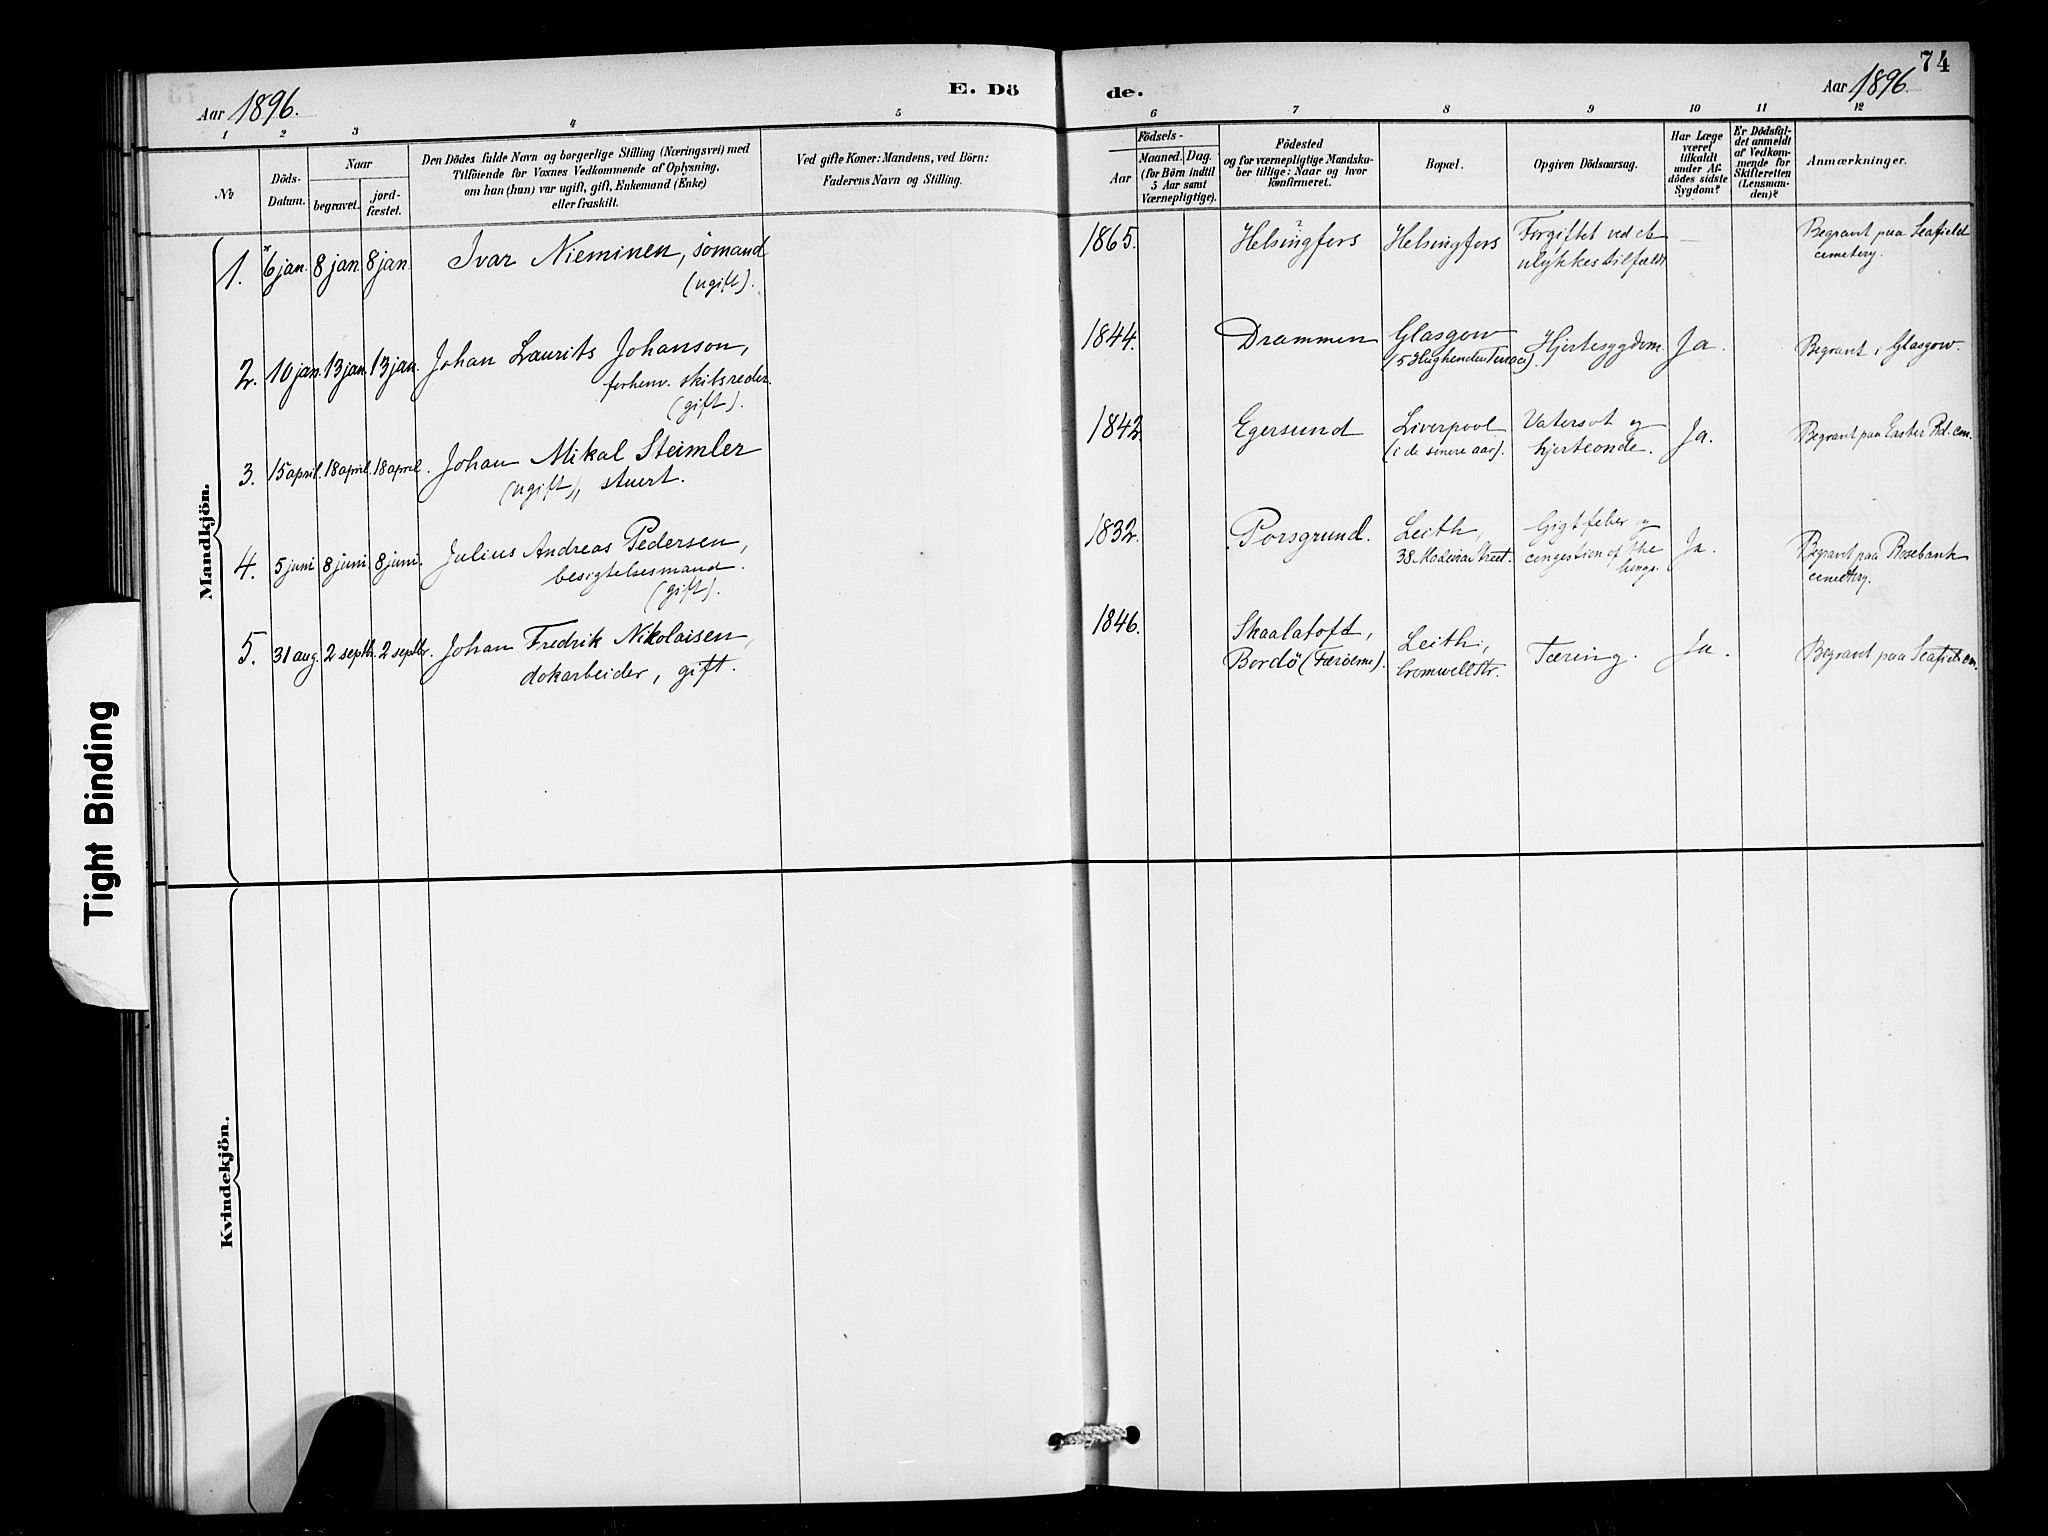 74
Aar 1896.
E. Dö
de.
Aar 1896
1 2 3 4 5 6 7 8 9 10 11 12
No
Döds-
Datum.
Naar
begravet.
jord-
fæstet.
Den Dödes fulde Navn og borgerlige Stilling (Næringsvei) med
Tilföiende for Voxnes Vedkommende af Oplysning,
om han (hun) var ugift, gift, Enkemand (Enke)
eller fraskilt.
Ved gifte Koner: Mandens, ved Börn:
Faderens Navn og Stilling.
Födsels-
Aar
Maaned. Dag.
(for Börn indtil
5 Aar samt
Værnepligtige).
Födested
og for værnepligtige Mandska-
ber tillige: Naar og hvor
konfirmeret.
Bopæl.
Opgiven Dödsaarsag.
Har Læge
været
tilkaldt
under Af-
dödes sidste
Sygdom?
Er Dödsfal-
det anmeldt
af Vedkom-
mende for
Skifteretten
(Lensman-
den)?
Anmærkninger.
Mandkjön.
1. 6 jan. 8 jan. 8 jan. Ivar Nieminen, sömand
(ugift).
1865. Helsingfors Helsingfors Forgiftet ved et
ulykkestilfælde —
Begravet paa Seafield
cemetery.
2. 10 jan. 13 jan. 13 jan. Johan Laurits Johanson,
forhenv. skibsreder.
(gift).
1844. Drammen Glasgow
(5 Hughenden Terrace). Hjertesygdom. Ja.
Begravet i Glasgow.
3. 15 april. 18 april. 18 april. Johan Mikal Steimler
(ugift), stuert.
1842. Egersund Liverpool
(i de senere aar). Vatersot og
hjerteonde. Ja.
Begravet paa Easter Rd. cem.
4. 5 juni 8 juni 8 juni. Julius Andreas Pedersen,
besigtelsesmand.
(gift).
1832. Porsgrund. Leith,
38 Madeira Street. Gigtfeber og
congestion of the
lungs. Ja.
Begravet paa Rosebank
cemetery.
5. 31 aug. 2 septbr. 2 septbr. Johan Fredrik Nikolaisen,
dokarbeider, gift.
1846. Skaalatoft,
Bordö (Færöerne). Leith,
Cromwell Str. Tæring. Ja.
Begravet paa Seafield cem.
Kvindekjön.
Tight Binding